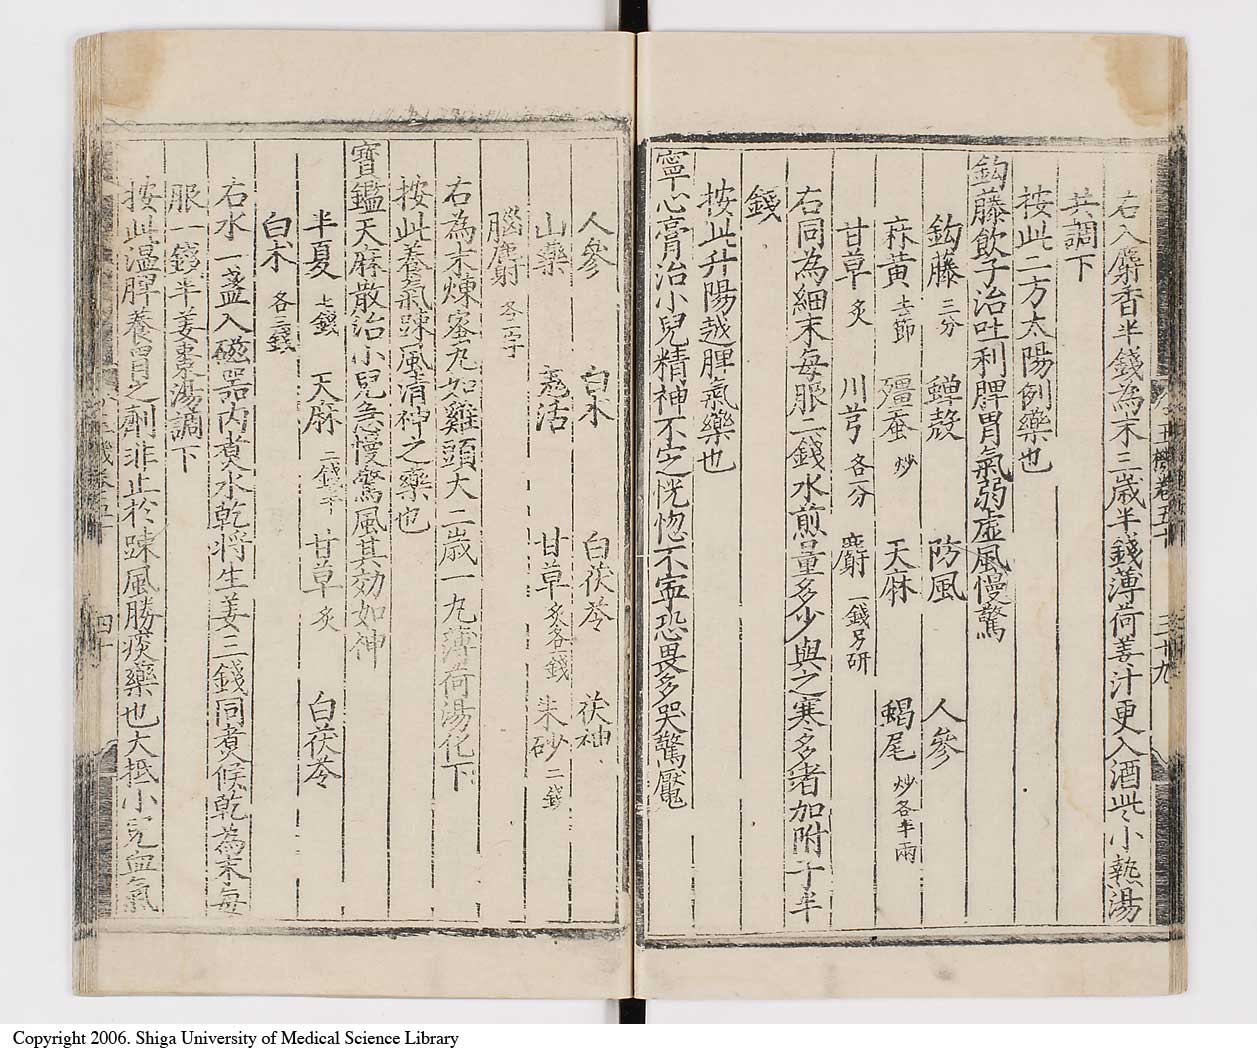 右入麝香半錢為末三歳半錢薄荷姜汁更入酒些小熱湯
共調下
按此二方太陽例藥也
鈎藤飲子治吐利脾胃氣弱虚風慢驚
鈎藤 三分 蟬殼 防風 人參
麻黃 去節 殭蚕 炒 天麻 蝎尾 炒各半兩
甘草 炙 川芎 各一分 麝 一錢另研
右同為細末每服二錢水煎量多少與之寒多者加附子半
錢
按此升陽越脾氣藥也
寧心膏治小兒精神不定恍惚不寧恐畏多哭驚魘
三十九
人參 白术 白茯苓 茯神
山藥 羗活 甘草 炙各一錢 朱砂 二錢
腦麝 各一字
右為末煉蜜丸如雞頭大二歳一丸薄荷湯化下
按此養氣踈風清神之藥也
寳鑑天麻散治小兒急慢驚風其効如神
半夏 七錢 天麻 二錢半 甘草 炙 白茯苓
白术 各三錢
右水一盞入磁器内煑水乾将生姜三錢同煑候乾為末每
服一錢半姜棗湯調下
按此温脾養胃之劑非止於踈風勝痰藥也大抵小兒血氣
四十
Copyright 2006. Shiga University of Medical Science Library